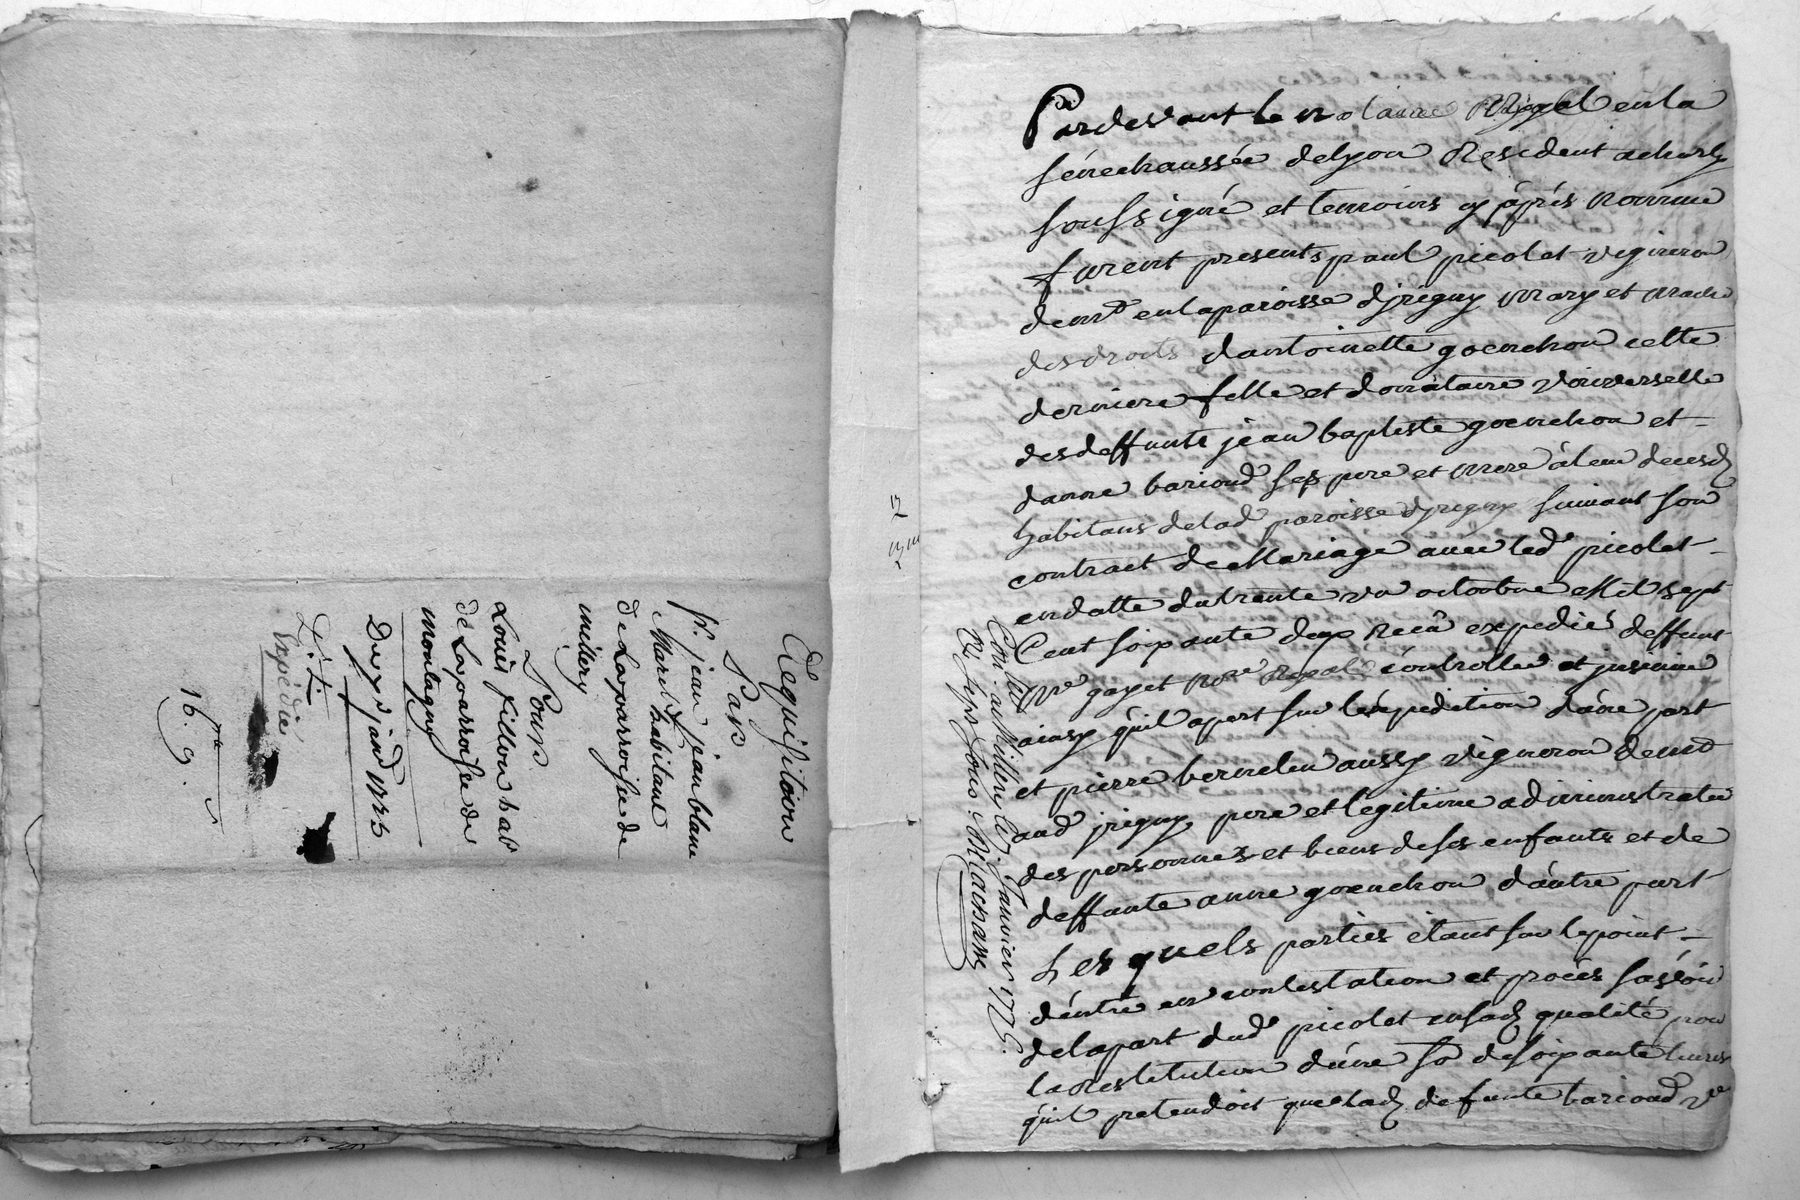 Requisitoire
Pour
Sr. jean jean blanc
Marchd habitant
de La parroisse de
millery
Pour
Louis fillion hab
de La parroisse de
montagny
Du 3e jand 1773
Expédié
16.
Pardevant le notaire Royal en la
sénéchaussée de lyon Résident a charly
soussigné et temoins cy âprés nommé
furent presents paul picolet vigneron
demt en la paroisse d'jrigny mary et maitre
des droits d'antoinette goenchon cette
derniere fille et donataire universelle
des deffunts jean baptiste goenchon et
danne bariond ses pere et mere â leur deces
habitans de lad paroisse d'jrigny suivant son
contract de Mariage avec led picolet
en datte du trente un octobre Mil sept
Cent soixante deux Recû expedié deffunt
Me gayet nore Royal controllé et jnsinué
ainsy qu'il apert sur l'éxpedition d'ûne part
et pierre bernelin aussy vigneron demt
aud jrigny pere et légitime administrateur
des personnes et biens de ses enfants et de
deffunte anne goenchon d'aûtre part
Les quels parties étant sur le point
d'éntré en contestation et procés savoir
de la part dud picolet en sad qualité pour
la restitution d'ûne so de soixante livres
qu'il pretendoit que lad defunte bariond ve
Contrllé a Millery le 7. Janvier 1775.